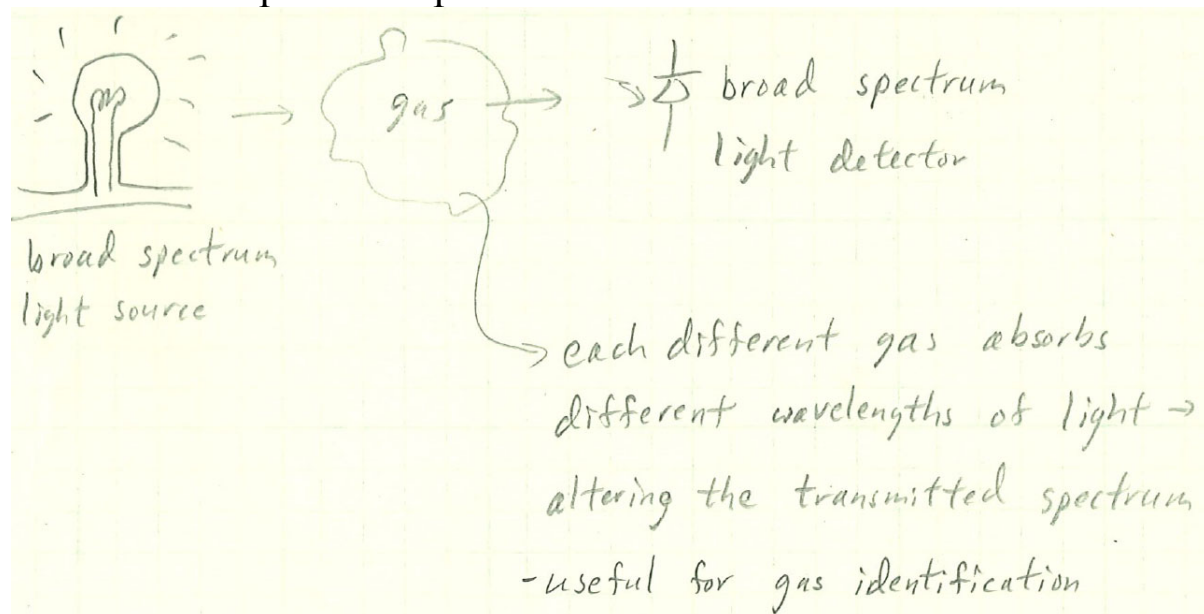 gas
broad spectrum
light detector
broad spectrum
light source
each different gas absorbs
different wavelengths of light →
altering the transmitted spectrum
-useful for gas identification